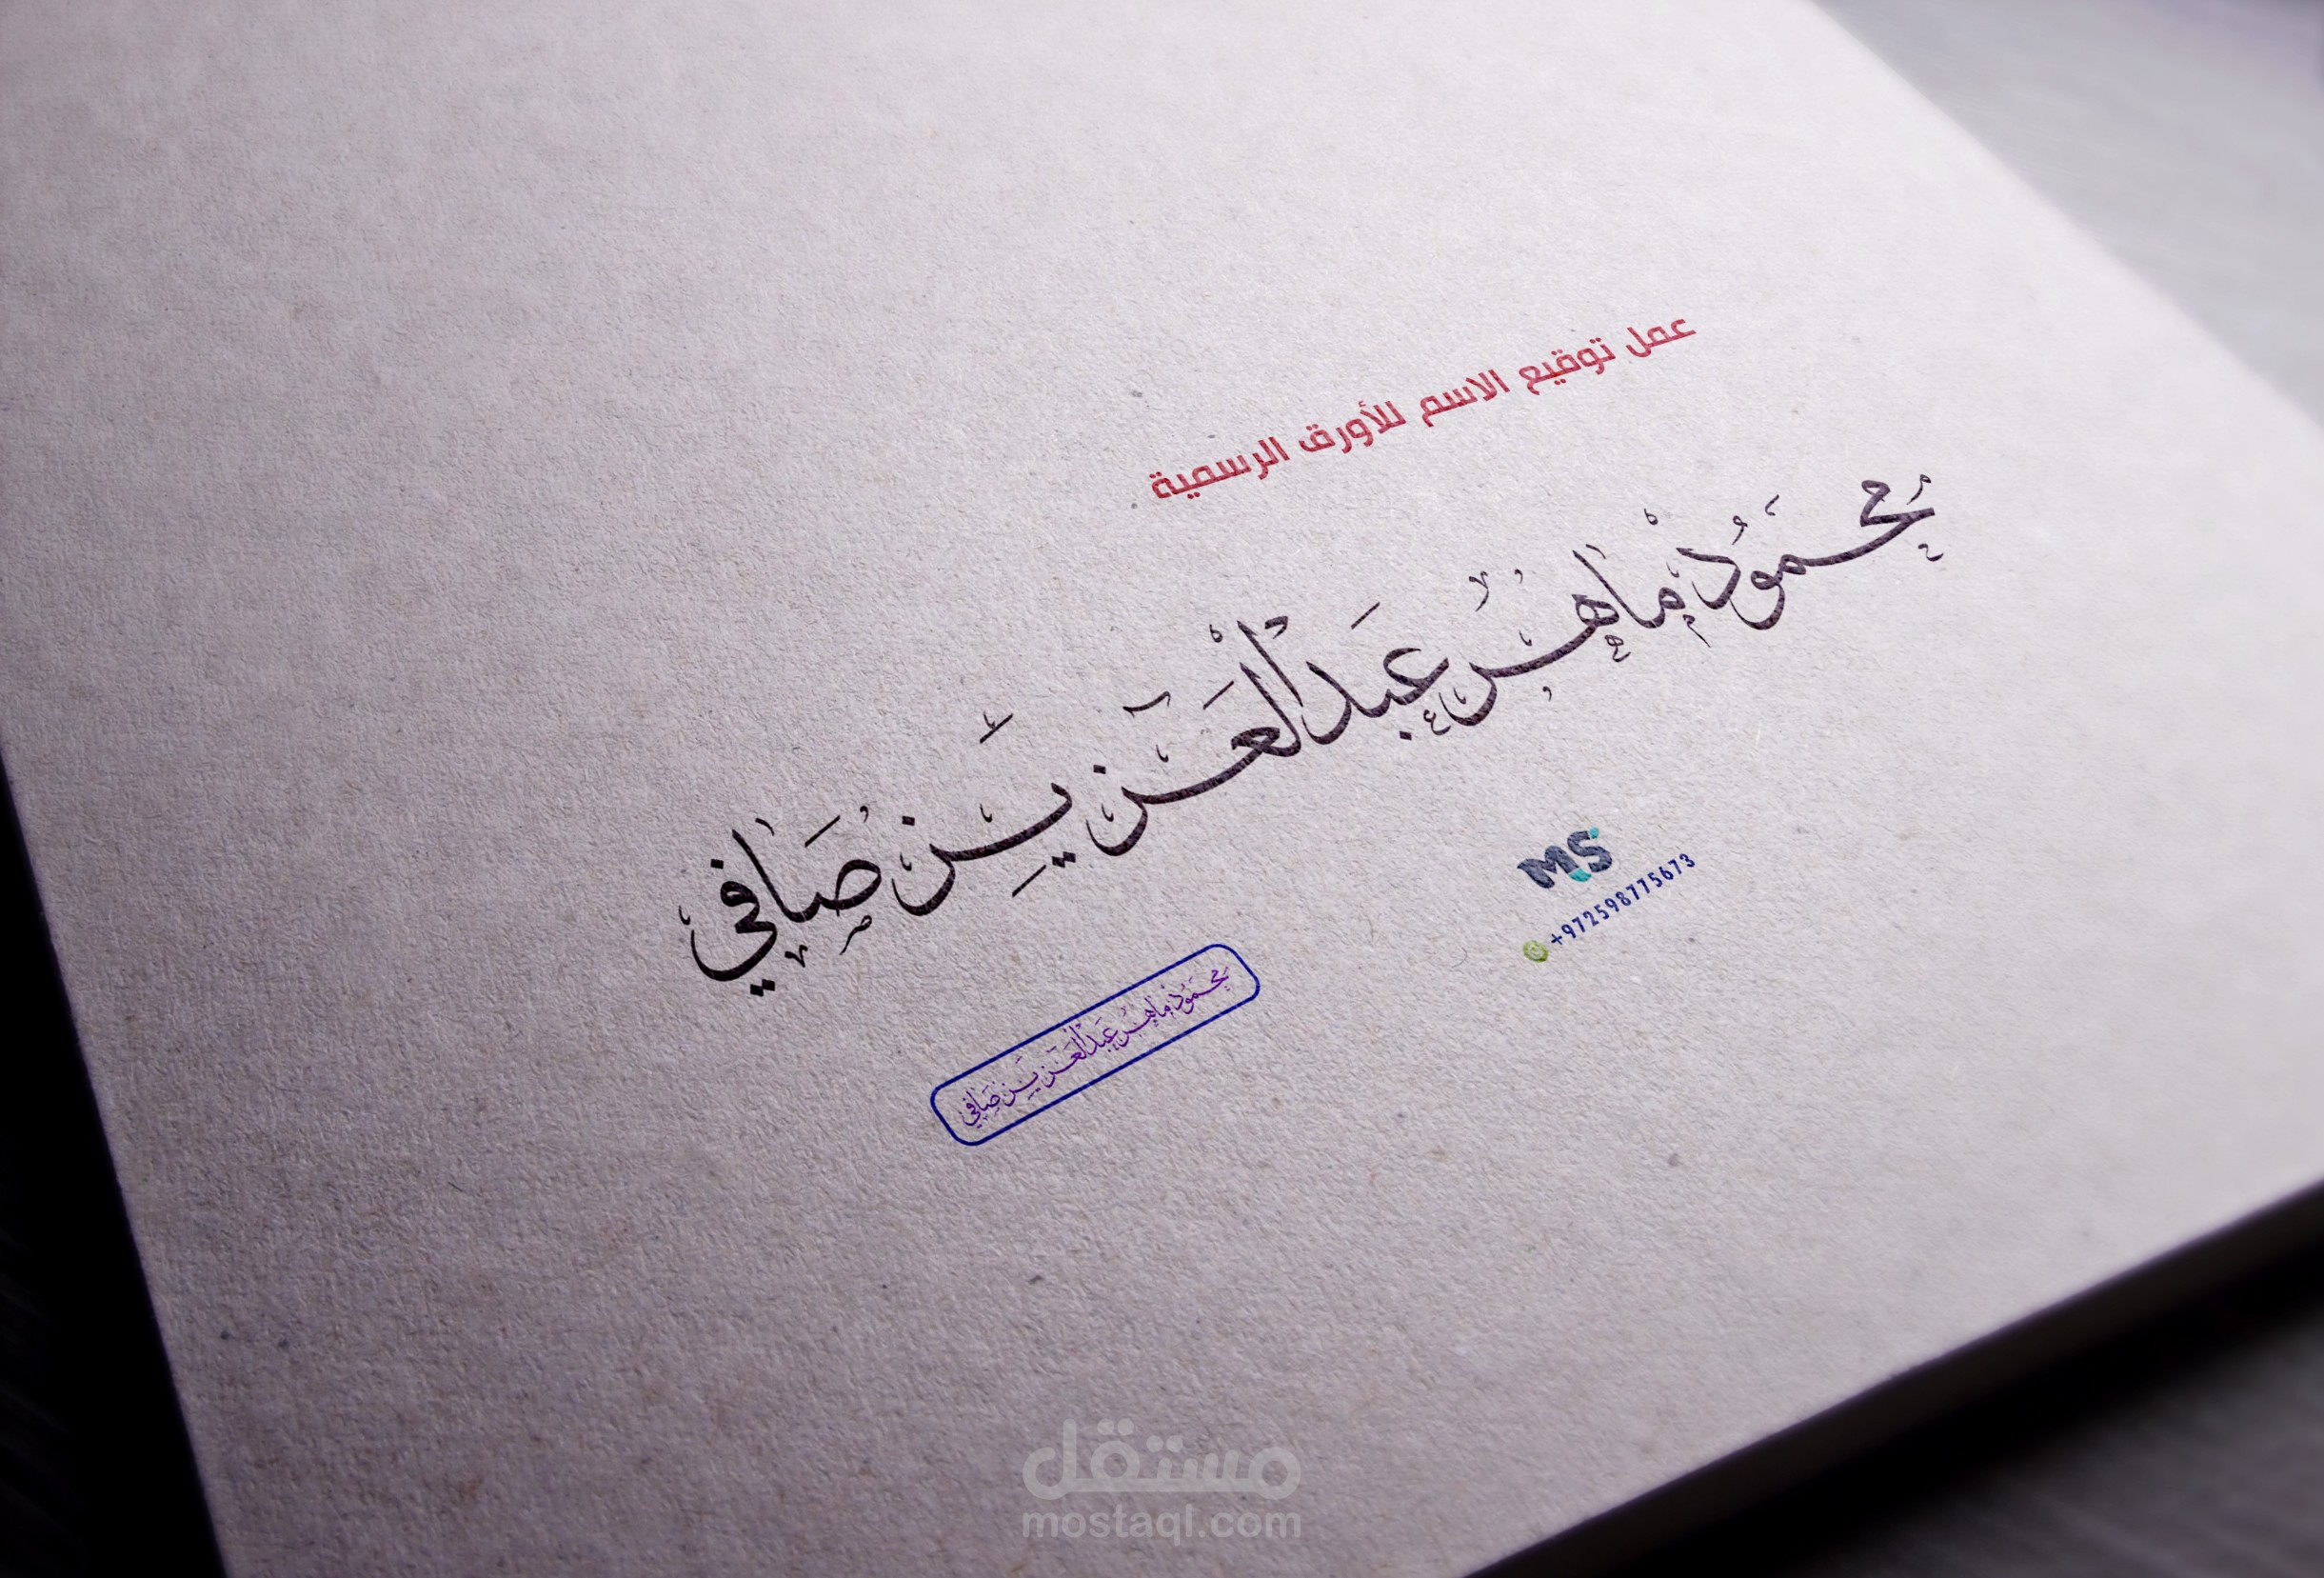 عمل توقيع الاسم للأورق الرسمية
مُحَمُود مَاهِر عَبَدالْعَزيِز صَافي
MS
+972598775673
محمُود ماهر عبَدالْعَزيِز صَافي
مستقل
mostaql.com